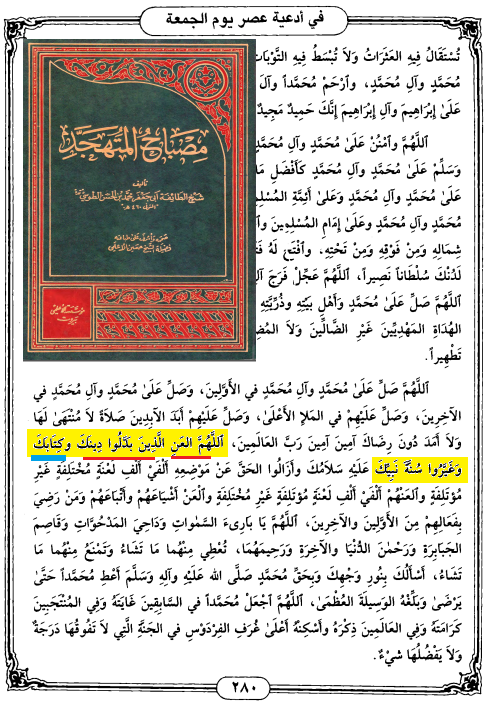 في أدعية عصر يوم الجمعة
تُسْتَقَالُ فِيهِ العَثَرَاتُ وَلَا تُبْسَطُ فِيهِ التَّوْبَاتُ
مُحَمَّدٍ وَآلِ مُحَمَّدٍ، وَأَرْحَمْ مُحَمَّداً وَآلَ
عَلَىٰ إِبْرَاهِيمَ وَآلِ إِبْرَاهِيمَ إِنَّكَ حَمِيدٌ مَجِيدٌ
اَللَّهُمَّ وَآمْنُنْ عَلَىٰ مُحَمَّدٍ وَآلِ مُحَمَّدٍ
وَسَلِّمْ عَلَىٰ مُحَمَّدٍ وَآلِ مُحَمَّدٍ كَأَفْضَلِ مَا
عَلَىٰ مُحَمَّدٍ وَآلِ مُحَمَّدٍ وَعَلىٰ أَئِمَّةِ
مُحَمَّدٍ وَآلِ مُحَمَّدٍ وَعَلَىٰ إِمَامِ المُسْلِمِينَ
شِمَالِهِ وَمِنْ فَوْقِهِ وَمِنْ تَحْتِهِ، وَآفْتَحْ لَهُ
لَدُنْكَ سُلْطَاناً نَصِيراً، اَللَّهُمَّ عَجِّلْ فَرَجَ
اَللَّهُمَّ صَلِّ عَلَىٰ مُحَمَّدٍ وَأَهْلِ بَيْتِهِ وَذُرِّيَّتِهِ
الهُدَاةِ المَهْدِيِّينَ غَيْرِ الضَّالِّينَ وَلَا
تَطْهِيراً.
مصباح المتهجد
تأليف
شيخ الطائفة أبي جعفر محمد بن الحسن الطوسي
اَللَّهُمَّ صَلِّ عَلَىٰ مُحَمَّدٍ وَآلِ مُحَمَّدٍ في الأَوَّلِينَ، وَصَلِّ عَلَىٰ مُحَمَّدٍ وَآلِ مُحَمَّدٍ في
الآخِرِينَ، وَصَلِّ عَلَيْهِمْ في المَلإِ الأَعْلَىٰ، وَصَلِّ عَلَيْهِمْ أَبَدَ الآبِدِينَ صَلَاةً لَا مُنْتَهَىٰ لَهَا
وَلَا أَمَدَ دُونَ رِضَاكَ آمِينَ آمِينَ رَبَّ العَالَمِينَ، اَللَّهُمَّ العَنِ الَّذِينَ بَدَّلُوا دِينَكَ وكِتَابَكَ
وَغَيَّرُوا سُنَّةَ نَبِيِّكَ عَلَيْهِ سَلَامُكَ وَأَزَالُوا الحَقَّ عَنْ مَوْضِعِهِ أَلْفَيْ أَلْفِ لَعْنَةٍ مُخْتَلِفَةٍ غَيْرِ
مُؤْتَلِفَةٍ وَآلعَنْهُمْ أَلْفَيْ أَلْفِ لَعْنَةٍ مُؤْتَلِفَةٍ غَيْرِ مُخْتَلِفَةٍ وَآلْعَنْ أَشْيَاعَهُمْ وَأَتْبَاعَهُمْ وَمَنْ رَضِيَ
بِفَعَالِهِمْ مِنَ الأَوَّلِينَ وَالآخِرِينَ، اَللَّهُمَّ يَا بَارِىءَ السَّمٰوَاتِ وَدَاحِيَ المَدْحُوَّاتِ وَقَاصِمَ
الجَبَابِرَةِ وَرَحْمٰنَ الدُّنْيَا وَالآخِرَةِ وَرَحِيمَهُمَا، تُعْطِي مِنْهُما مَا تَشَاءُ وَتَمْنَعُ مِنْهُما مَا
تَشَاءُ، أَسْأَلُكَ بِنُورِ وَجْهِكَ وَبِحَقِّ مُحَمَّدٍ صَلَّى الله عَلَيْهِ وَآلِهِ وَسَلَّمَ أَعْطِ مُحَمَّداً حَتَّىٰ
يَرْضَىٰ وَبَلِّغْهُ الوَسِيلَةَ العُظْمَىٰ، اَللَّهُمَّ آجْعَلْ مُحَمَّداً في السَّابِقِينَ غَايَتَهُ وَفِي المُنْتَجَبِينَ
كَرَامَتَهُ وَفِي العَالَمِينَ ذِكْرَهُ وَأَسْكِنْهُ أَعْلَىٰ غُرَفِ الفِرْدَوْسِ في الجَنَّةِ الَّتِي لَا تَفُوقُهَا دَرَجَةٌ
وَلَا يَفْضُلُهَا شَيْءٌ.
٢٨٠